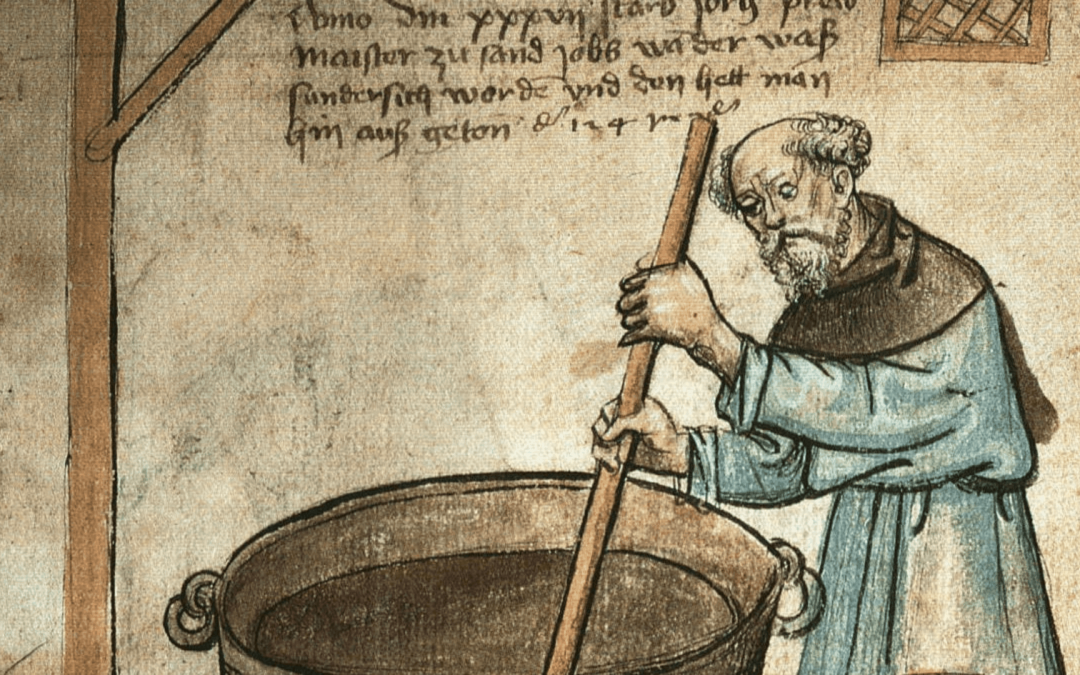 Anno dm xxxvii starb Jorg prew
maister zu sand jobs wa der waß
sundersich wordē vnd den hett man
hin auß geton